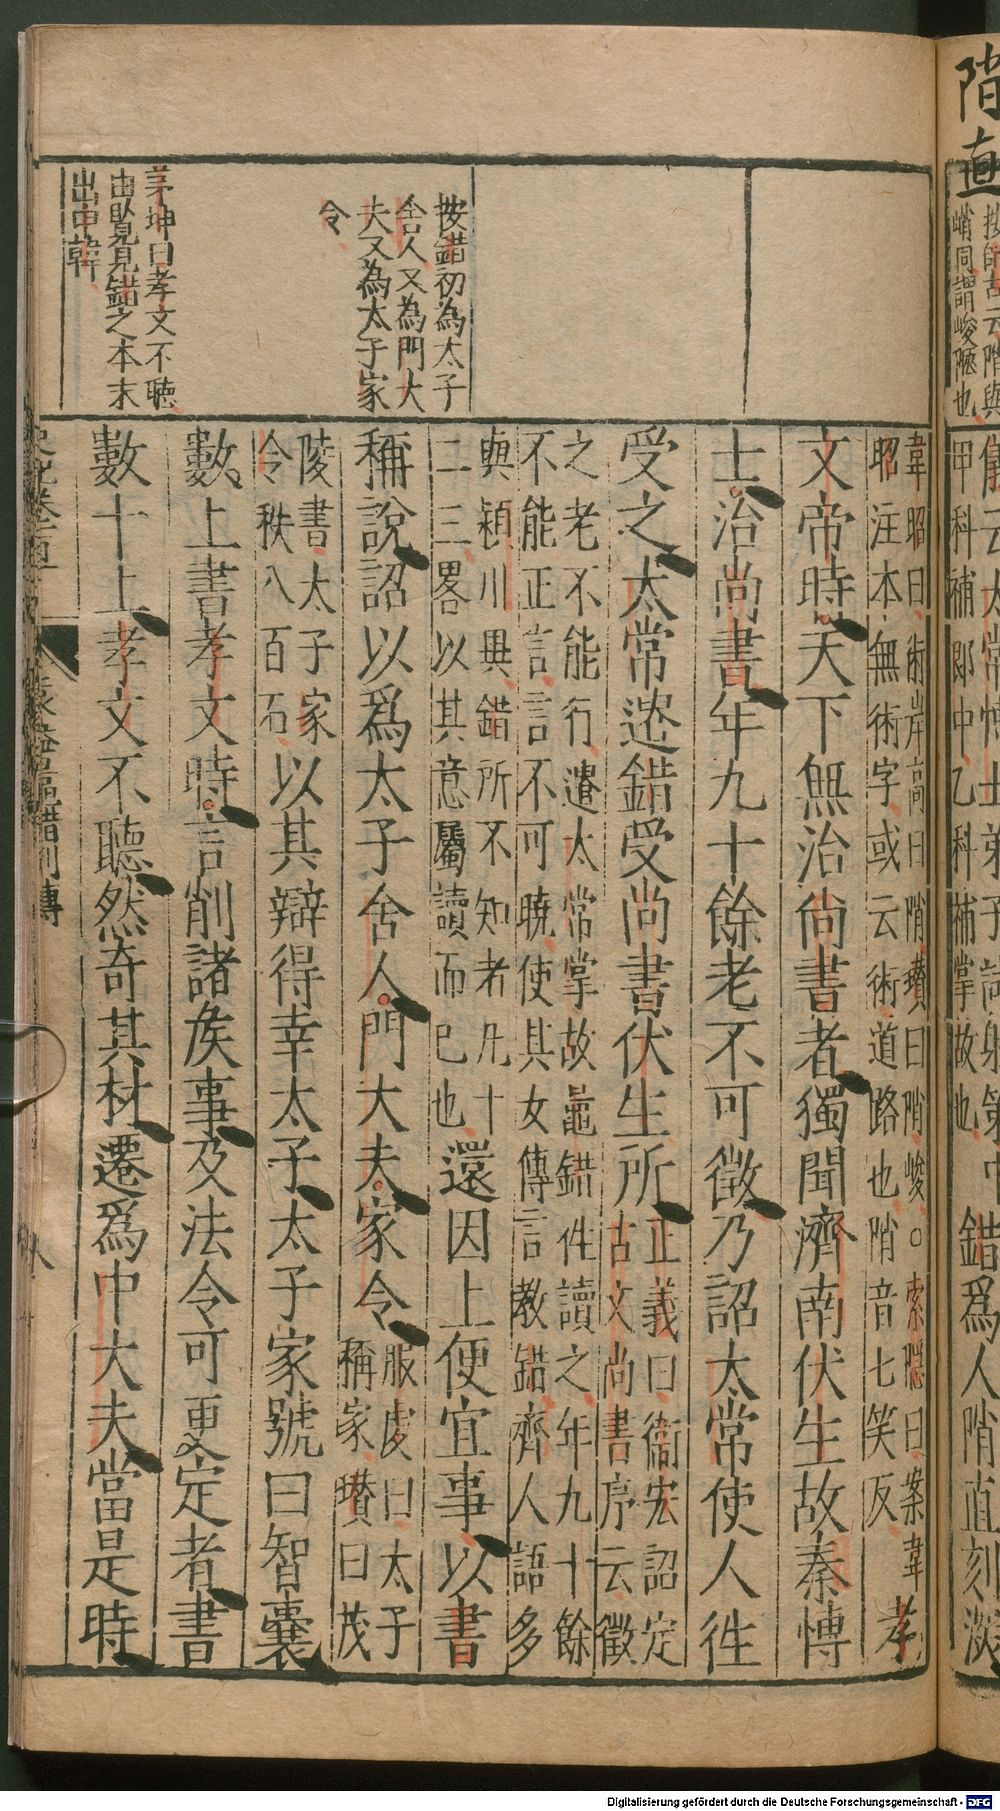 陗直
按師古云陗與
峭同謂峻陿也
儀云太常博士弟子試射策中
甲科補郎中乙科補掌故也
錯爲人陗直刻深
按錯初為太子
舍人又為門大
夫又為太子家
令
茅坤曰孝文不聽
由賢見錯之本末
出申韓
韋昭曰術岸高曰陗瓚曰陗峻○索隱曰案韋
昭注本無術字或云術道路也陗音七笑反
孝
文帝時天下無治尚書者獨聞濟南伏生故秦博
士治尚書年九十餘老不可徵乃詔太常使人徃
受之太常遣錯受尚書伏生所
正義曰衞宏詔定
古文尚書序云徵
之老不能行遣太常掌故鼂錯徃讀之年九十餘
不能正言言不可曉使其女傳言教錯齊人語多
與潁川異錯所不知者凡十
二三畧以其意屬讀而已也
還因上便宜事以書
稱說詔以爲太子舍人門大夫家令
服虔曰太子
稱家瓚曰茂
陵書太子家
令秩八百石
以其辯得幸太子太子家號曰智囊
數上書孝文時言削諸侯事及法令可更定者書
數十上孝文不聽然奇其材遷爲中大夫當是時
史記卷一百一 袁盎鼂錯列傳 八
Digitalisierung gefördert durch die Deutsche Forschungsgemeinschaft - DFG